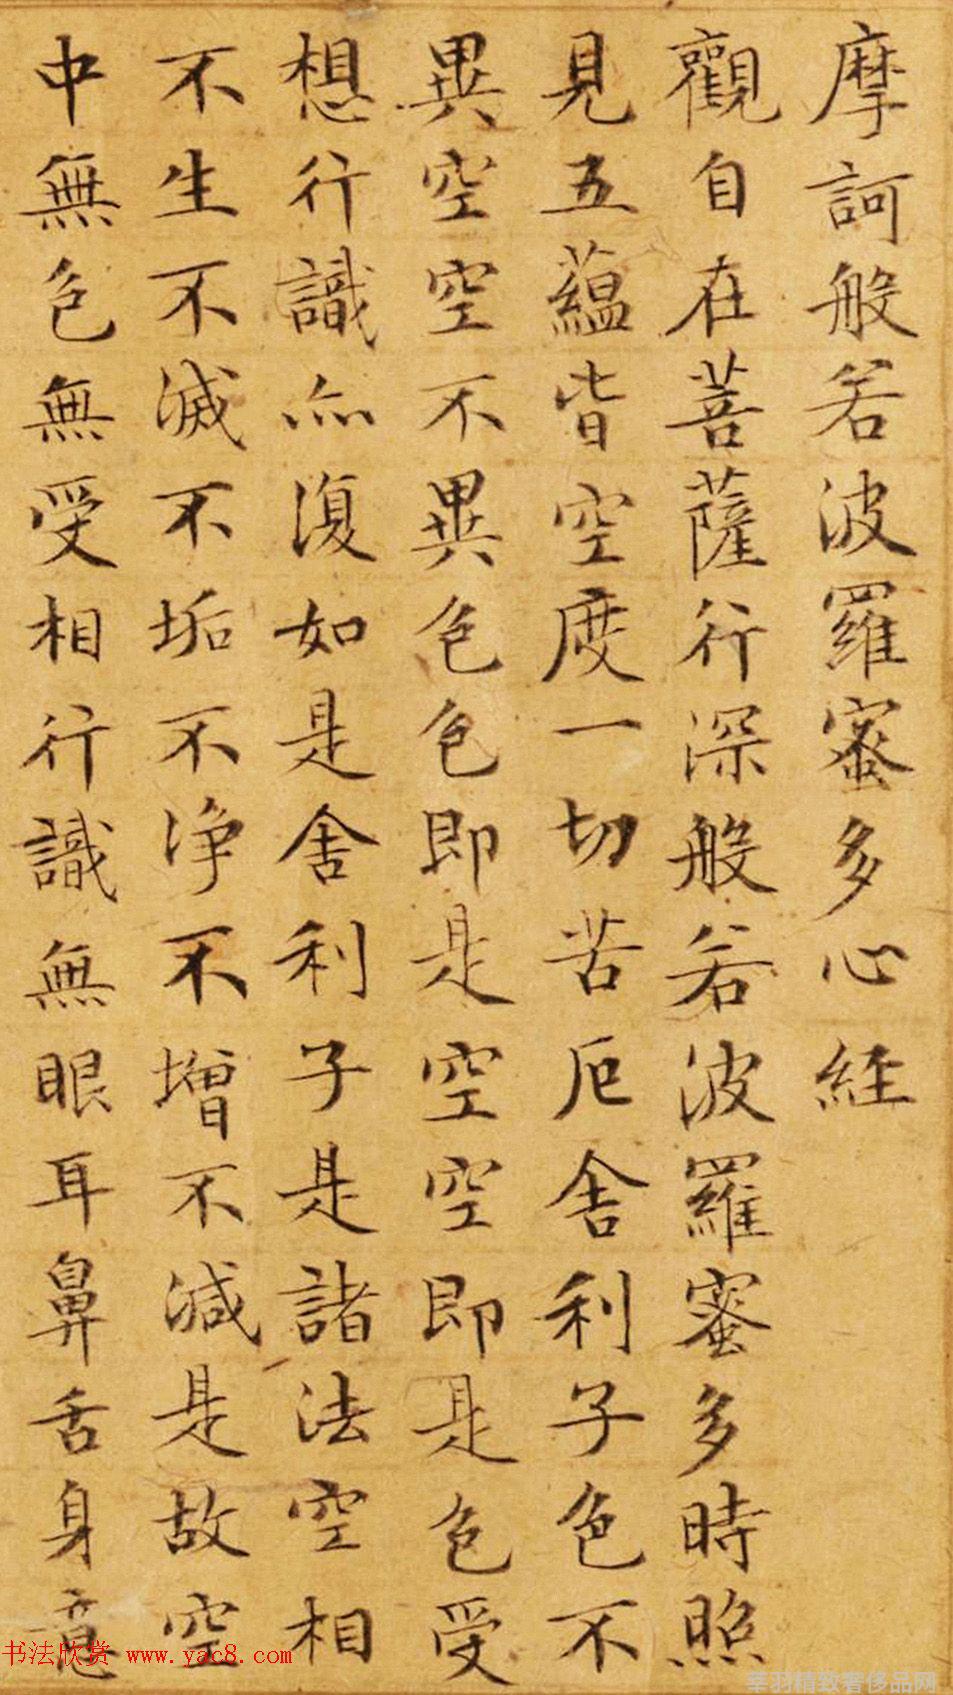 摩訶般若波羅蜜多心經
觀自在菩薩行深般若波羅蜜多時照
見五蘊皆空度一切苦厄舍利子色不
異空空不異色色即是空空即是色受
想行識亦復如是舍利子是諸法空相
不生不滅不垢不净不增不減是故空
中無色無受相行識無眼耳鼻舌身意
书法欣赏 www.yac8.com
莘羽精致奢侈品网